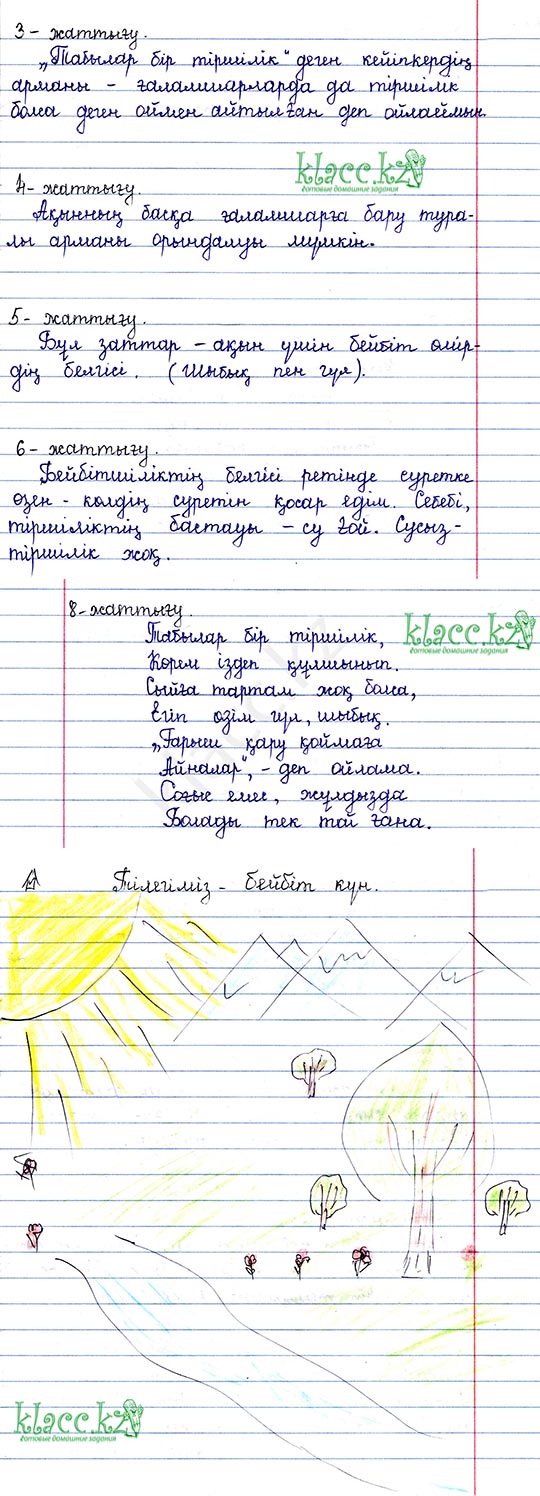 3 - жаттығу.
„Табылар бір тіршілік" деген кейіпкердің
арманы - ғаламшарларда да тіршілік
болса деген оймен айтылған деп ойлаймын.
klacc.kz
готовые домашние задания
4 - жаттығу.
Ақынның басқа ғаламшарға бару тура-
лы арманы орындалуы мүмкін.
5 - жаттығу.
Бұл заттар - ақын үшін бейбіт өмір-
дің белгісі. (Шыбық пен гүл).
6 - жаттығу.
Бейбітшіліктің белгісі ретінде суретке
өзен - көлдің суретін қосар едім. Себебі,
тіршіліктің бастауы - су ғой. Сусыз -
тіршілік жоқ.
8 - жаттығу.
klacc.kz
готовые домашние задания
Табылар бір тіршілік,
Көрем іздеп құлшынып.
Сыйға тартам жоқ болса,
Егіп өзім гүл, шыбық.
„Ғарыш қару қоймаға
Айналар", - деп ойлама.
Соғыс емес, жұлдызда
Болады тек той ғана.
Тілегіміз - бейбіт күн.
klacc.kz
готовые домашние задания